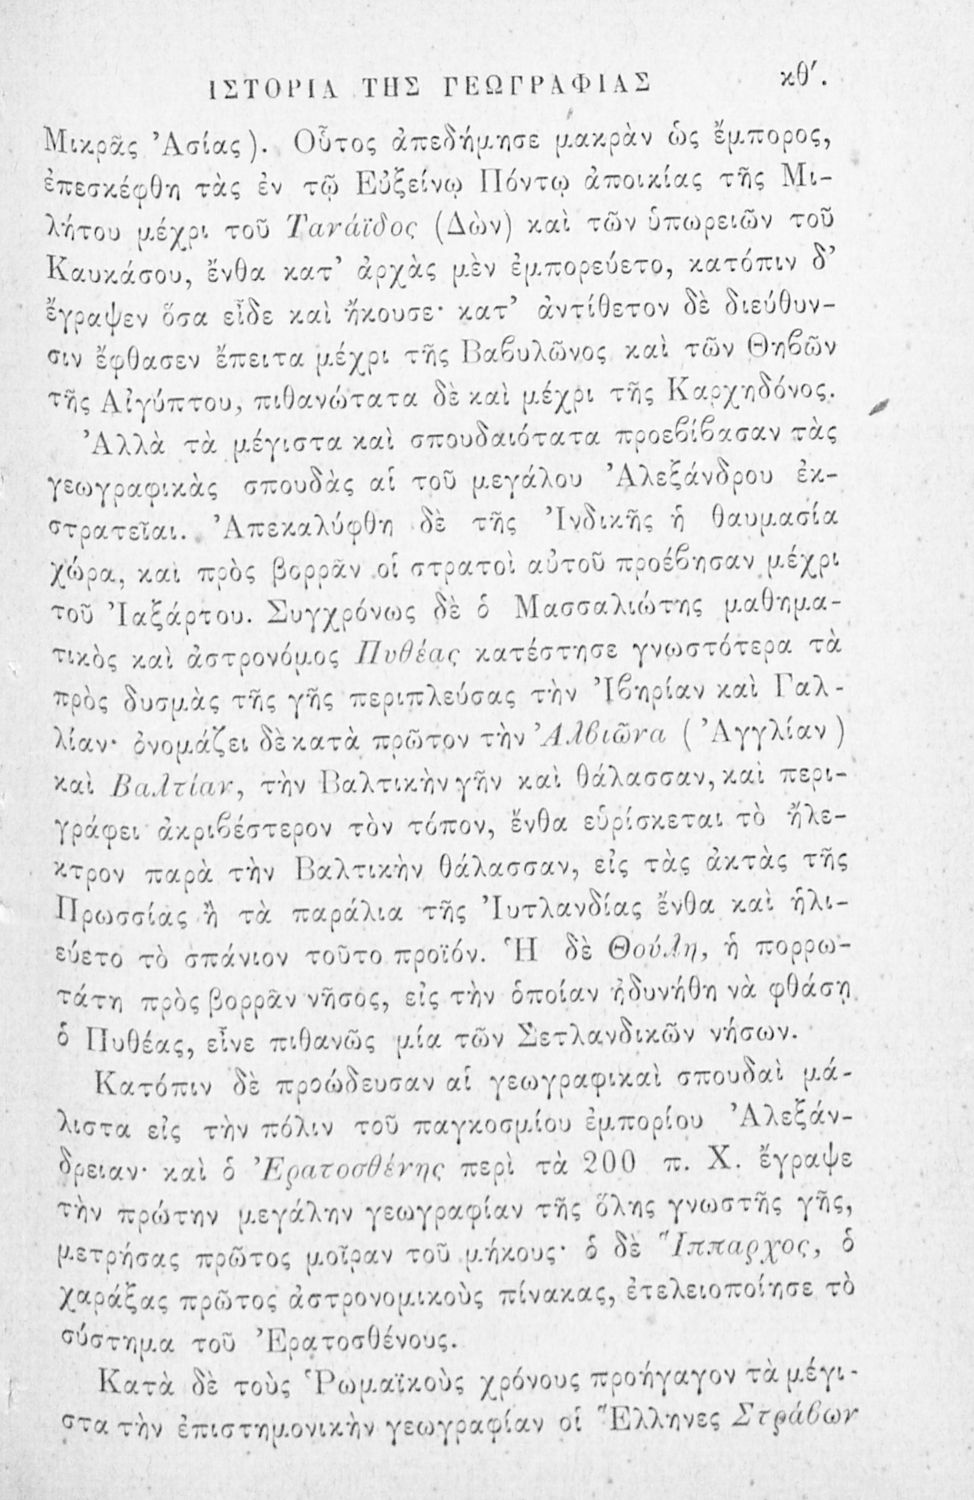 ΙΣΤΟΡΙΑ ΤΗΣ ΓΕΩΓΡΑΦΙΑΣ κθ΄.
Μικρᾶς Ἀσίας). Οὗτος ἀπεδήμησε μακρὰν ὡς ἔμπορος,
ἐπεσκέφθη τὰς ἐν τῷ Εὐξείνῳ Πόντῳ ἀποικίας τῆς Μι-
λήτου μέχρι τοῦ Τανάϊδος (Δὼν) καὶ τῶν ὑπωρειῶν τοῦ
Καυκάσου, ἔνθα κατ' ἀρχὰς μὲν ἐμπορεύετο, κατόπιν δ'
ἔγραψεν ὅσα εἶδε καὶ ἤκουσε· κατ' ἀντίθετον δὲ διεύθυν-
σιν ἔφθασεν ἔπειτα μέχρι τῆς Βαϐυλῶνος καὶ τῶν Θηϐῶν
τῆς Αἰγύπτου, πιθανώτατα δὲ καὶ μέχρι τῆς Καρχηδόνος.
Ἀλλὰ τὰ μέγιστα καὶ σπουδαιότατα προεϐίϐασαν τὰς
γεωγραφικὰς σπουδὰς αἱ τοῦ μεγάλου Ἀλεξάνδρου ἐκ-
στρατεῖαι. Ἀπεκαλύφθη δὲ τῆς Ἰνδικῆς ἡ θαυμασία
χώρα, καὶ πρὸς βορρᾶν οἱ στρατοὶ αὐτοῦ προέϐησαν μέχρι
τοῦ Ἰαξάρτου. Συγχρόνως δὲ ὁ Μασσαλιώτης μαθημα-
τικὸς καὶ ἀστρονόμος Πυθέας κατέστησε γνωστότερα τὰ
πρὸς δυσμὰς τῆς γῆς περιπλεύσας τὴν Ἰϐηρίαν καὶ Γαλ-
λίαν· ὀνομάζει δὲ κατὰ πρῶτον τὴν Ἀλϐιῶνα (Ἀγγλίαν)
καὶ Βαλτίαν, τὴν Βαλτικὴν γῆν καὶ θάλασσαν, καὶ περι-
γράφει ἀκριϐέστερον τὸν τόπον, ἔνθα εὑρίσκεται τὸ ἤλε-
κτρον παρὰ τὴν Βαλτικὴν θάλασσαν, εἰς τὰς ἀκτὰς τῆς
Πρωσσίας ἢ τὰ παράλια τῆς Ἰυτλανδίας ἔνθα καὶ ἡλι-
εύετο τὸ σπάνιον τοῦτο προϊόν. Ἡ δὲ Θούλη, ἡ πορρω-
τάτη πρὸς βορρᾶν νῆσος, εἰς τὴν ὁποίαν ἠδυνήθη νὰ φθάσῃ
ὁ Πυθέας, εἶνε πιθανῶς μία τῶν Σετλανδικῶν νήσων.
Κατόπιν δὲ προώδευσαν αἱ γεωγραφικαὶ σπουδαὶ μά-
λιστα εἰς τὴν πόλιν τοῦ παγκοσμίου ἐμπορίου Ἀλεξάν-
δρειαν· καὶ ὁ Ἐρατοσθένης περὶ τὰ 200 π. Χ. ἔγραψε
τὴν πρώτην μεγάλην γεωγραφίαν τῆς ὅλης γνωστῆς γῆς,
μετρήσας πρῶτος μοῖραν τοῦ μήκους· ὁ δὲ Ἵππαρχος, ὁ
χαράξας πρῶτος ἀστρονομικοὺς πίνακας, ἐτελειοποίησε τὸ
σύστημα τοῦ Ἐρατοσθένους.
Κατὰ δὲ τοὺς Ῥωμαϊκοὺς χρόνους προήγαγον τὰ μέγι-
στα τὴν ἐπιστημονικὴν γεωγραφίαν οἱ Ἕλληνες Στράϐων